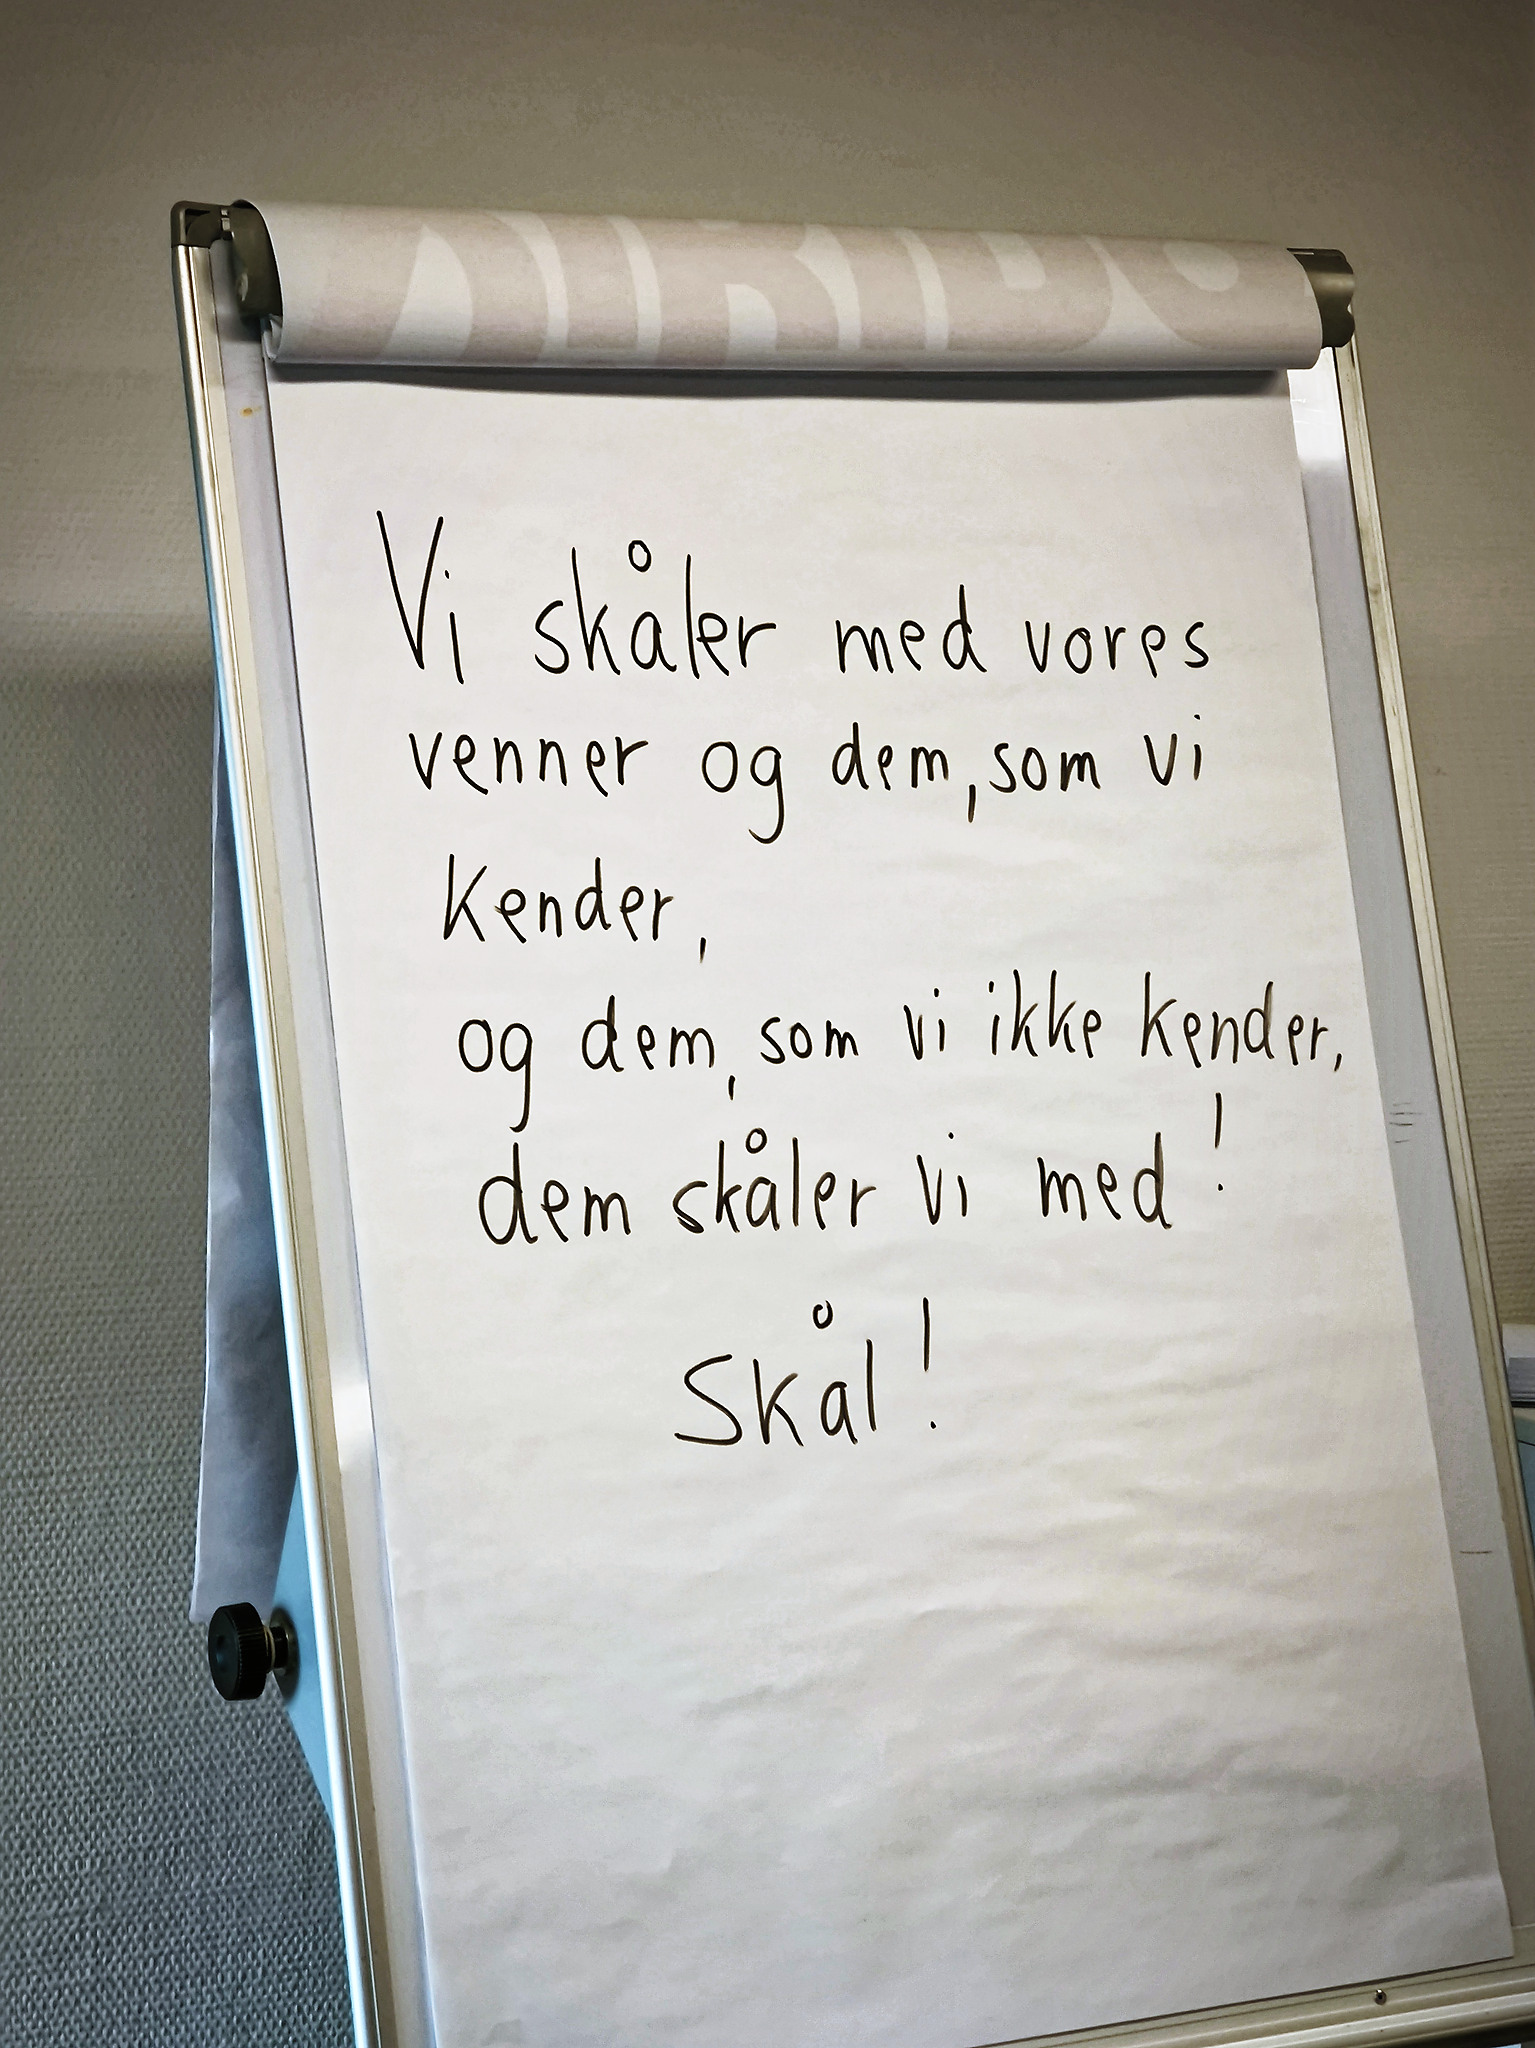 Vi skåler med vores
venner og dem, som vi
kender,
og dem, som vi ikke kender,
dem skåler vi med!
Skål!